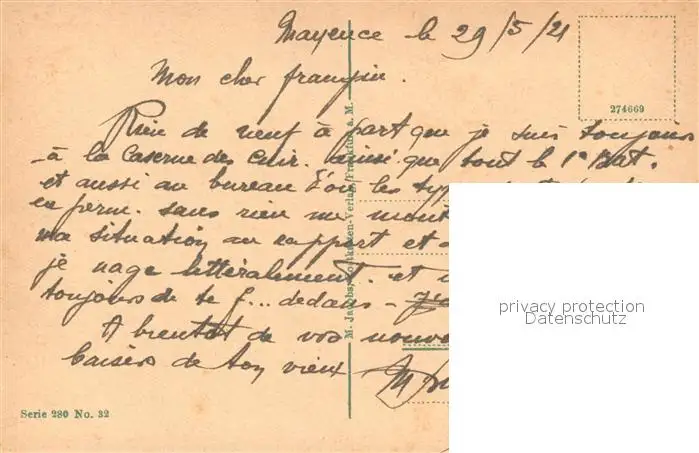 Mayence le 29/5/21
Mon cher françin.
274669
Rien de neuf à part que je suis toujours
à la Caserne des Cuir. ainsi que tout le 1er Bat.
et aussi au bureau d'où les
en perm. sans rien me
ma situation au rapport et
je nage littéralement. et
toujours de te f... dedans -
A bientot de vos
baisers de ton vieux
M. Jacobs, Postkarten-Verlag, Frankfurt a. M.
Serie 280 No. 32
privacy protection
Datenschutz